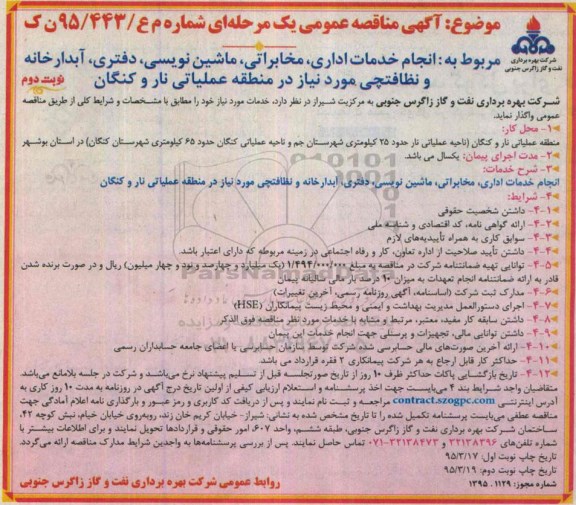 موضوع: آگهی مناقصه عمومی یک مرحله‌ای شماره م ع/۹۵/۴۴۳ ن ک
شرکت بهره برداری
نفت و گاز زاگرس جنوبی
مربوط به: انجام خدمات اداری، مخابراتی، ماشین نویسی، دفتری، آبدارخانه
و نظافتچی مورد نیاز در منطقه عملیاتی نار و کنگان
نوبت دوم
شرکت بهره برداری نفت و گاز زاگرس جنوبی به مرکزیت شیراز در نظر دارد، خدمات مورد نیاز خود را مطابق با مشخصات و شرایط کلی از طریق مناقصه
عمومی واگذار نماید.
۱- محل کار:
منطقه عملیاتی نار و کنگان (ناحیه عملیاتی نار حدود ۲۵ کیلومتری شهرستان جم و ناحیه عملیاتی کنگان حدود ۶۵ کیلومتری شهرستان کنگان) در استان بوشهر
۲- مدت اجرای پیمان: یکسال می باشد.
۳- شرح خدمات:
انجام خدمات اداری، مخابراتی، ماشین نویسی، دفتری، آبدارخانه و نظافتچی مورد نیاز در منطقه عملیاتی نار و کنگان
۴- شرایط:
۴-۱- داشتن شخصیت حقوقی
۴-۲- ارائه گواهی نامه، کد اقتصادی و شناسه ملی
۴-۳- سوابق کاری به همراه تأییدیه‌های لازم
۴-۴- داشتن تأیید صلاحیت از اداره تعاون، کار و رفاه اجتماعی در زمینه مربوطه که دارای اعتبار باشد.
۴-۵- توانایی تهیه ضمانتنامه شرکت در مناقصه به مبلغ ۱/۴۹۴/۰۰۰/۰۰۰ (یک میلیارد و چهارصد و نود و چهار میلیون) ریال و در صورت برنده شدن
قادر به ارائه ضمانتنامه انجام تعهدات به میزان ۱۰ درصد بار مالی سالیانه پیمان
۴-۶- مدارک ثبت شرکت (اساسنامه، آگهی روزنامه رسمی، آخرین تغییرات)
۴-۷- اجرای دستورالعمل مدیریت بهداشت و ایمنی و محیط زیست پیمانکاران (HSE)
۴-۸- داشتن سابقه کار مفید، معتبر، مرتبط و مشابه با خدمات مورد نظر مناقصه فوق الذکر
۴-۹- داشتن توانایی مالی، تجهیزات و پرسنلی جهت انجام خدمات این پیمان
۴-۱۰- ارائه آخرین صورت‌های مالی حسابرسی شده شرکت توسط سازمان حسابرسی یا اعضای جامعه حسابداران رسمی
۴-۱۱- حداکثر کار قابل ارجاع به هر شرکت پیمانکاری ۲ فقره قرارداد می باشد.
۴-۱۲- تاریخ بازگشایی پاکات حداکثر ظرف ۱۰ روز از تاریخ صورتجلسه قبل از تسلیم پیشنهاد نرخ می‌باشد و شرکت در جلسه بلامانع می‌باشد.
متقاضیان واجد شرایط بند ۴ می‌بایست جهت اخذ پرسشنامه و استعلام ارزیابی کیفی از اولین تاریخ درج آگهی در روزنامه به مدت ۱۰ روز کاری به
آدرس اینترنتی contract.szogpc.com مراجعه و ثبت نام نمایند و پس از دریافت کد کاربری و رمز عبور و بارگذاری نامه اعلام آمادگی جهت
مناقصه عطفی می‌بایست پرسشنامه تکمیل شده را تا تاریخ مشخص شده به نشانی: شیراز- خیابان کریم خان زند، روبه‌روی خیابان خیام، نبش کوچه ۴۲،
ساختمان شرکت بهره برداری نفت و گاز زاگرس جنوبی، طبقه ششم، واحد ۶۰۷ امور حقوقی و قراردادها تحویل نمایند و برای اطلاعات بیشتر با
شماره تلفن‌های ۳۲۱۳۸۳۹۶ و ۳۲۱۳۸۴۷۳-۰۷۱ تماس حاصل نمایند. پس از بررسی پرسشنامه‌ها به واجدین شرایط مدارک مناقصه ارائه می‌گردد.
تاریخ چاپ نوبت اول: ۹۵/۳/۱۷
تاریخ چاپ نوبت دوم: ۹۵/۳/۱۹
شماره مجوز: ۱۱۲۹. ۱۳۹۵
روابط عمومی شرکت بهره برداری نفت و گاز زاگرس جنوبی